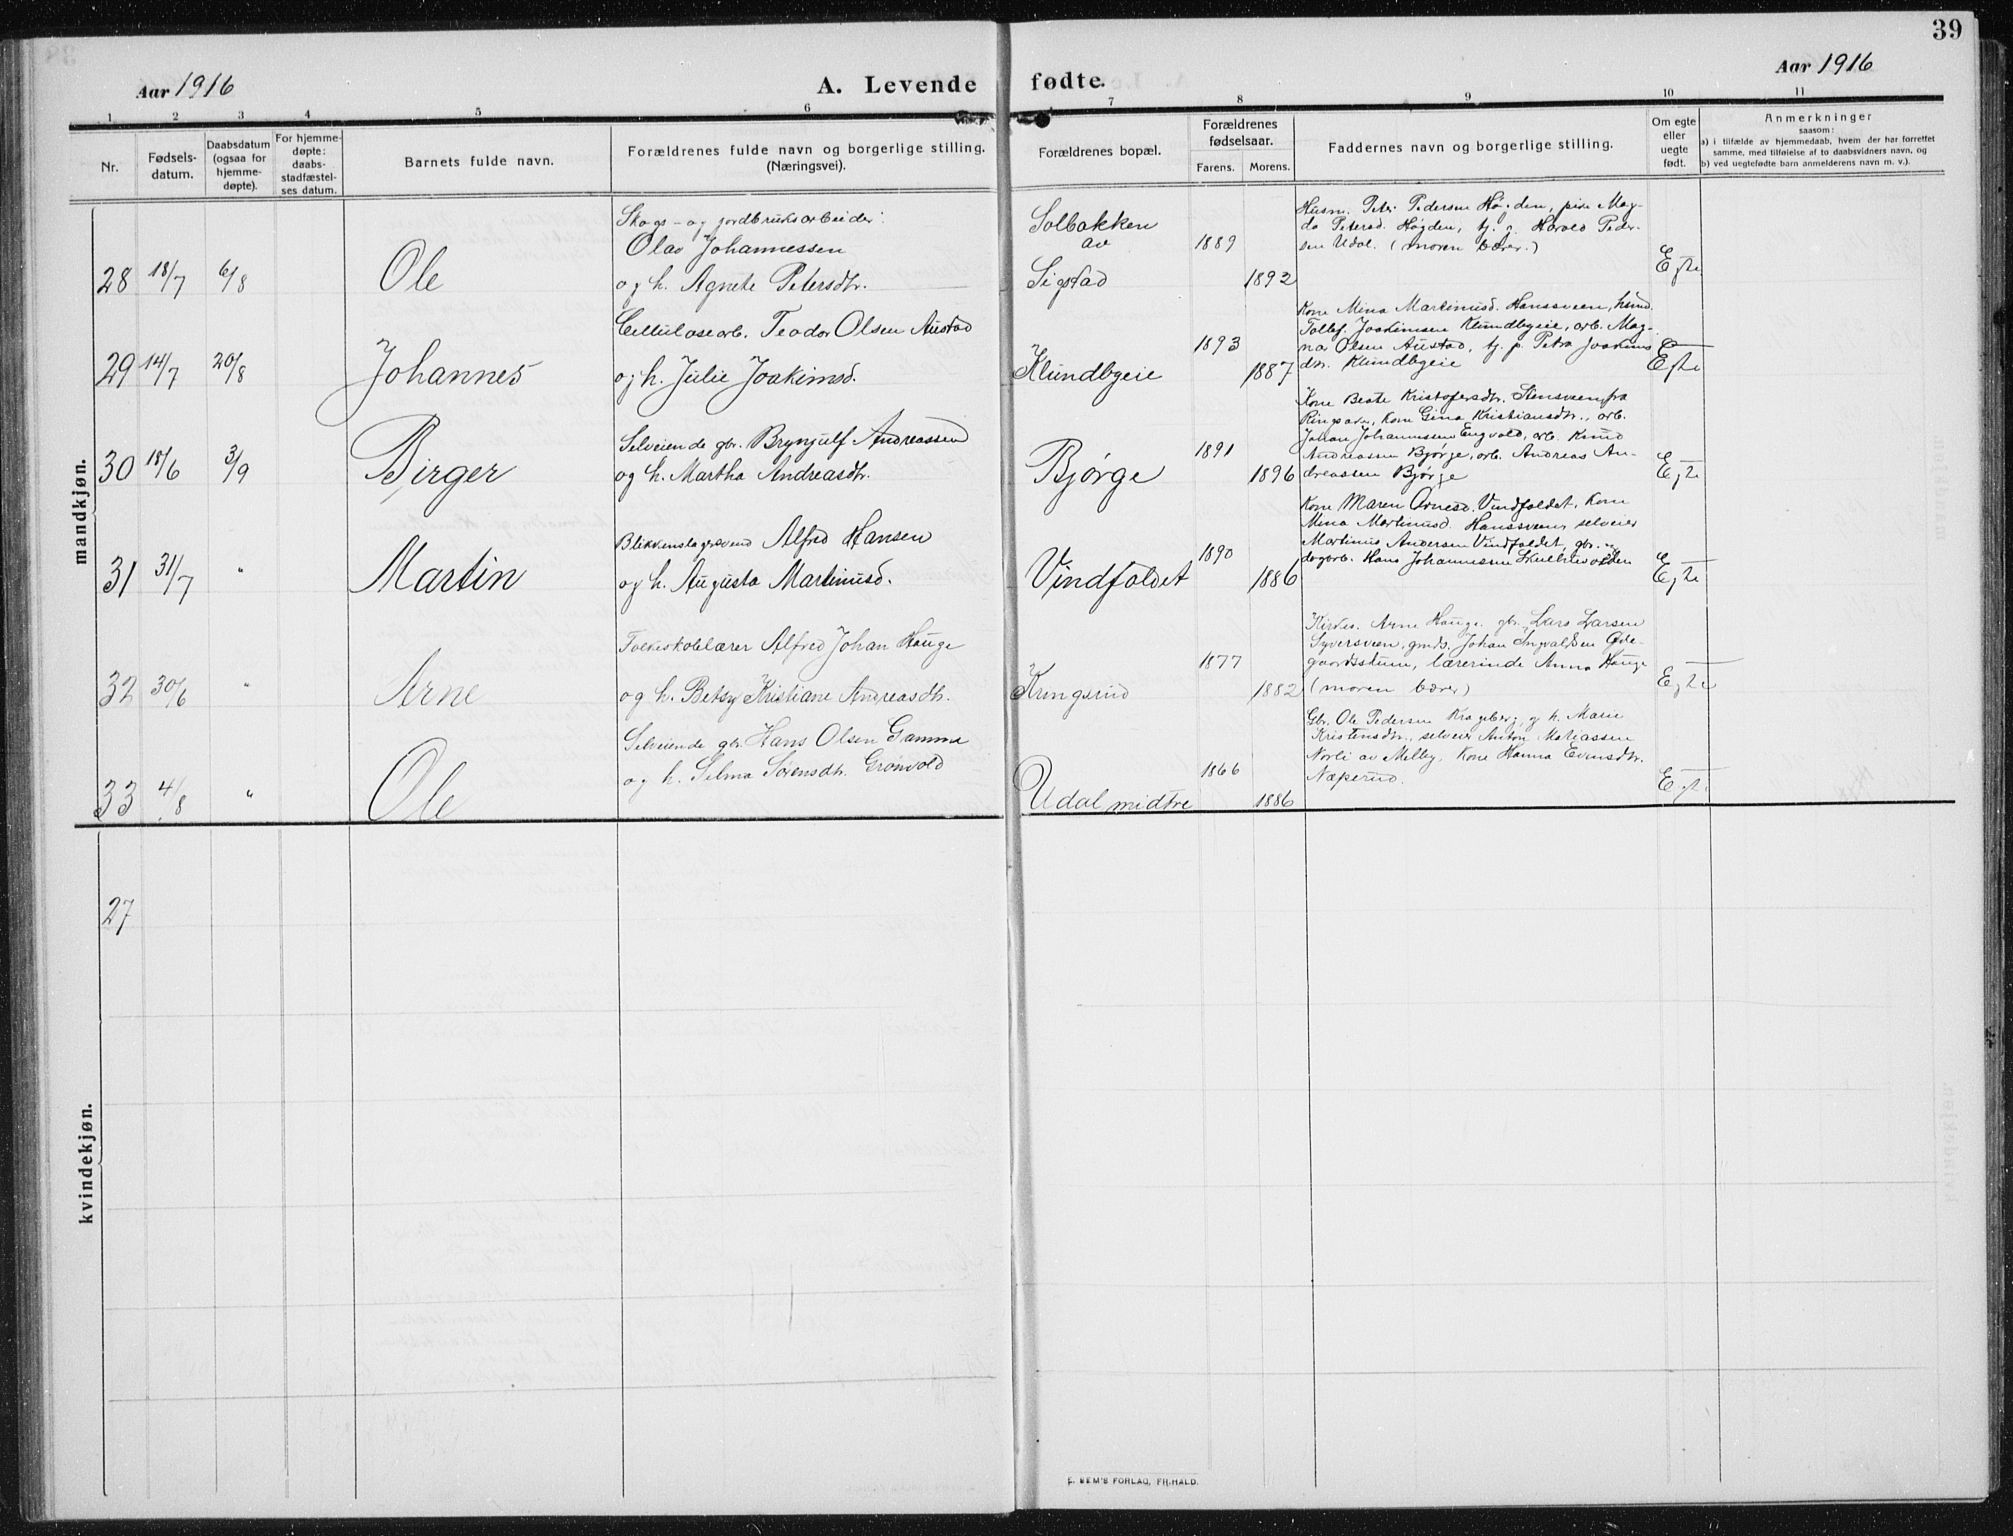 39
Aar 1916
A. Levende fødte.
Aar 1916
1 2 3 4 5 6 7 8 9 10 11
Nr.
Fødsels-
datum.
Daabsdatum
(ogsaa for
hjemme-
døpte).
For hjemme-
døpte:
daabs-
stadfæstel-
ses datum.
Barnets fulde navn.
Forældrenes fulde navn og borgerlige stilling.
(Næringsvei).
Forældrenes bopæl.
Forældrenes
fødselsaar.
Farens. Morens.
Faddernes navn og borgerlige stilling.
Om egte
eller
uegte
født.
Anmerkninger
saasom:
a) i tilfælde av hjemmedaab, hvem der har forrettet
samme, med tilføielse af to daabsvidners navn, og
b) ved uegtefødte barn anmelderens navn m. v.).
mandkjøn.
28 18/7 6/8 Ole
Skogs- og jordbruksarbeider:
Olav Johannessen
og h. Agnete Petersdtr.
Solbakken
av
Sigstad
1889
1892
Husm. Peter Pedersen Høgden, pike Mag-
da Petersd. Høgden, tj. g. Harald Peder-
sen Udal. (moren bærer.)
Egte
29 14/7 20/8 Johannes
Cellulosearb. Teodor Olsen Austad
og h. Julie Joakimsd.
Klundbyeie
1893
1887
Kone Mina Martinusd. Hanssveen, husmd.
Tollef Joakimsen Klundbyeie, arb. Mag-
nar Olsen Austad, tj. p. Petra Joakims
dtr. Klundbyeie
Egte
30 18/6 3/9 Birger
Selveiende gbr. Brynjulf Andreassen
og h. Martha Andreasdtr.
Bjørge
1891
1896
Kone Beate Kristofersdtr. Stensveen fra
Ringsaker, kone Gina Kristiansdtr., arb.
Johan Johannessen Engvold, arb. Knud
Andreassen Bjørge, arb. Andreas An-
dreassen Bjørge
Egte
31 31/7 " Martin
Blikkenslagersvend Alfred Hansen
og h. Augusta Martinusd.
Vindfaldet
1890
1886
Kone Maren Arnesd. Vindfaldet, kone
Mina Martinusd. Hanssveen, selveier
Martinus Andersen Vindfaldet, gbr. og
dagarb. Hans Johannessen
Egte
32 30/6 " Arne
Folkeskolelærer Alfred Johan Hauge
og h. Betsy Kristiane Andreasdtr.
Kringsrud
1877
1882
Kirkes. Arne Hauge, gbr. Lars Larsen
Syversveen, gmds. Johan Ingvaldsen Øde-
gaardsstuen, lærerinde Anna Hauge
(moren bærer)
Egte
33 4/8 " Ole
Selveiende gbr. Hans Olsen Gamma
og h. Selma Sørensdtr. Grønvold
Udal midtre
1866
1886
Gbr. Ole Pedersen Krageberg, g. h. Marie
Kristensdtr., selveier Anton Matiassen
Norli av Melby, kone Hanna Evensdtr.
Næperud.
Egte
kvindekjøn.
27
E. SEM'S FORLAG, FR.HALD.